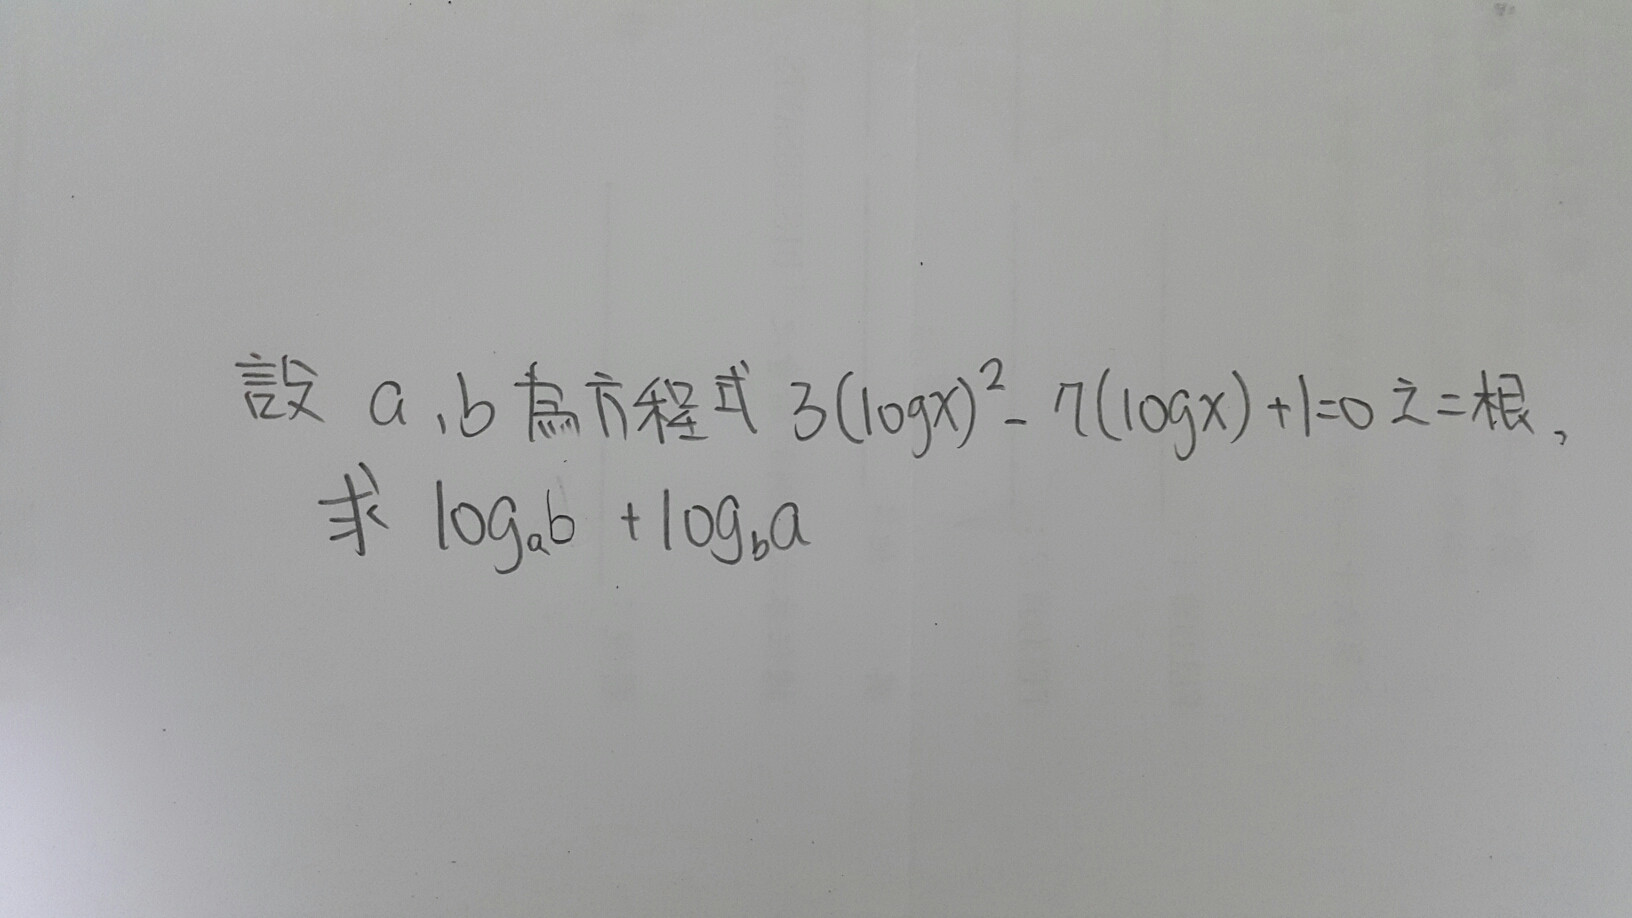 設 a、b 為方程式 3(logx)²- 7(logx)+1=0 之二根,
求 logₐb + log_b a